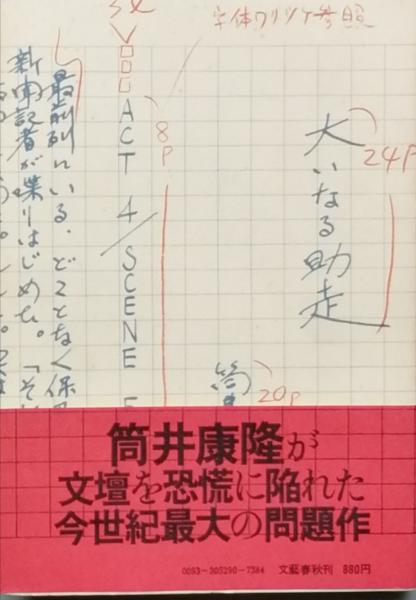 字体ワリツケ参照
大いなる助走
24P
筒
20P
8P
ACT 4/SCENE
最前列にいる、どことなく保
新聞記者が喋りはじめた。「そ
筒井康隆が
文壇を恐慌に陥れた
今世紀最大の問題作
0093-305290-7384 文藝春秋刊 880円